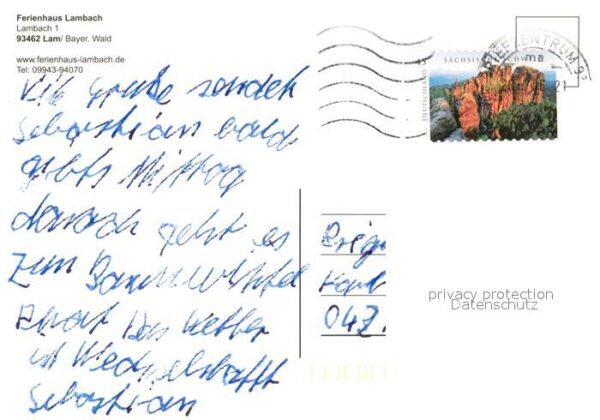 Ferienhaus Lambach
Lambach 1
93462 Lam/ Bayer. Wald
www.ferienhaus-lambach.de
Tel: 09943-94070
Grüße sendet
Sebastian bald
gibts Mittag
danach geht es
zum Baumwipfel
Das Wetter
ist Wechselhafft
Sebastian
45
SÄCHSISCHE SCHWEIZ
DEUTSCHLAND
BRIEFZENTRUM
ma
21
Brig
Karl
047
privacy protection
Datenschutz